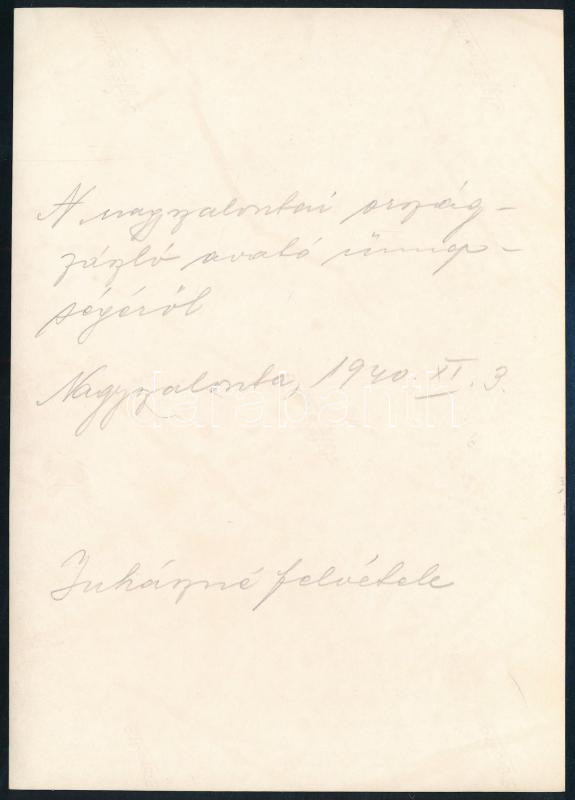 A nagyszalontai ország-
zászló avató ünnep-
ségéről
Nagyszalonta, 1940. XI. 3.
darabanth
Juhászné felvétele